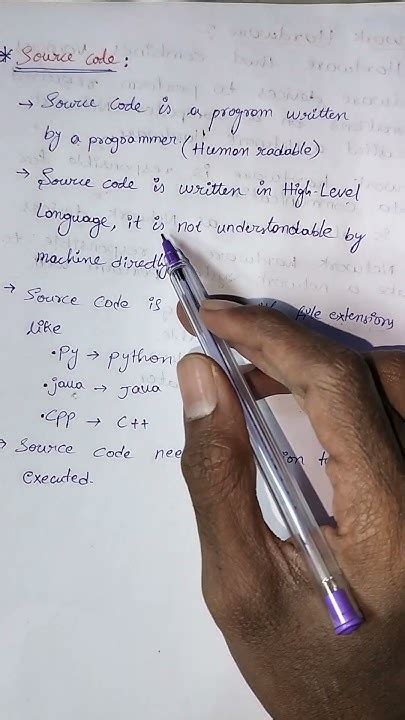 * Source code :
→ Source code is a program written
by a programmer (Human radable)
→ Source code is written in High-Level
Language, it is not understandable by
machine directly
→ Source code is file extension
like
• Py → python
• java → Java
• CPP → C++
→ Source code
executed.